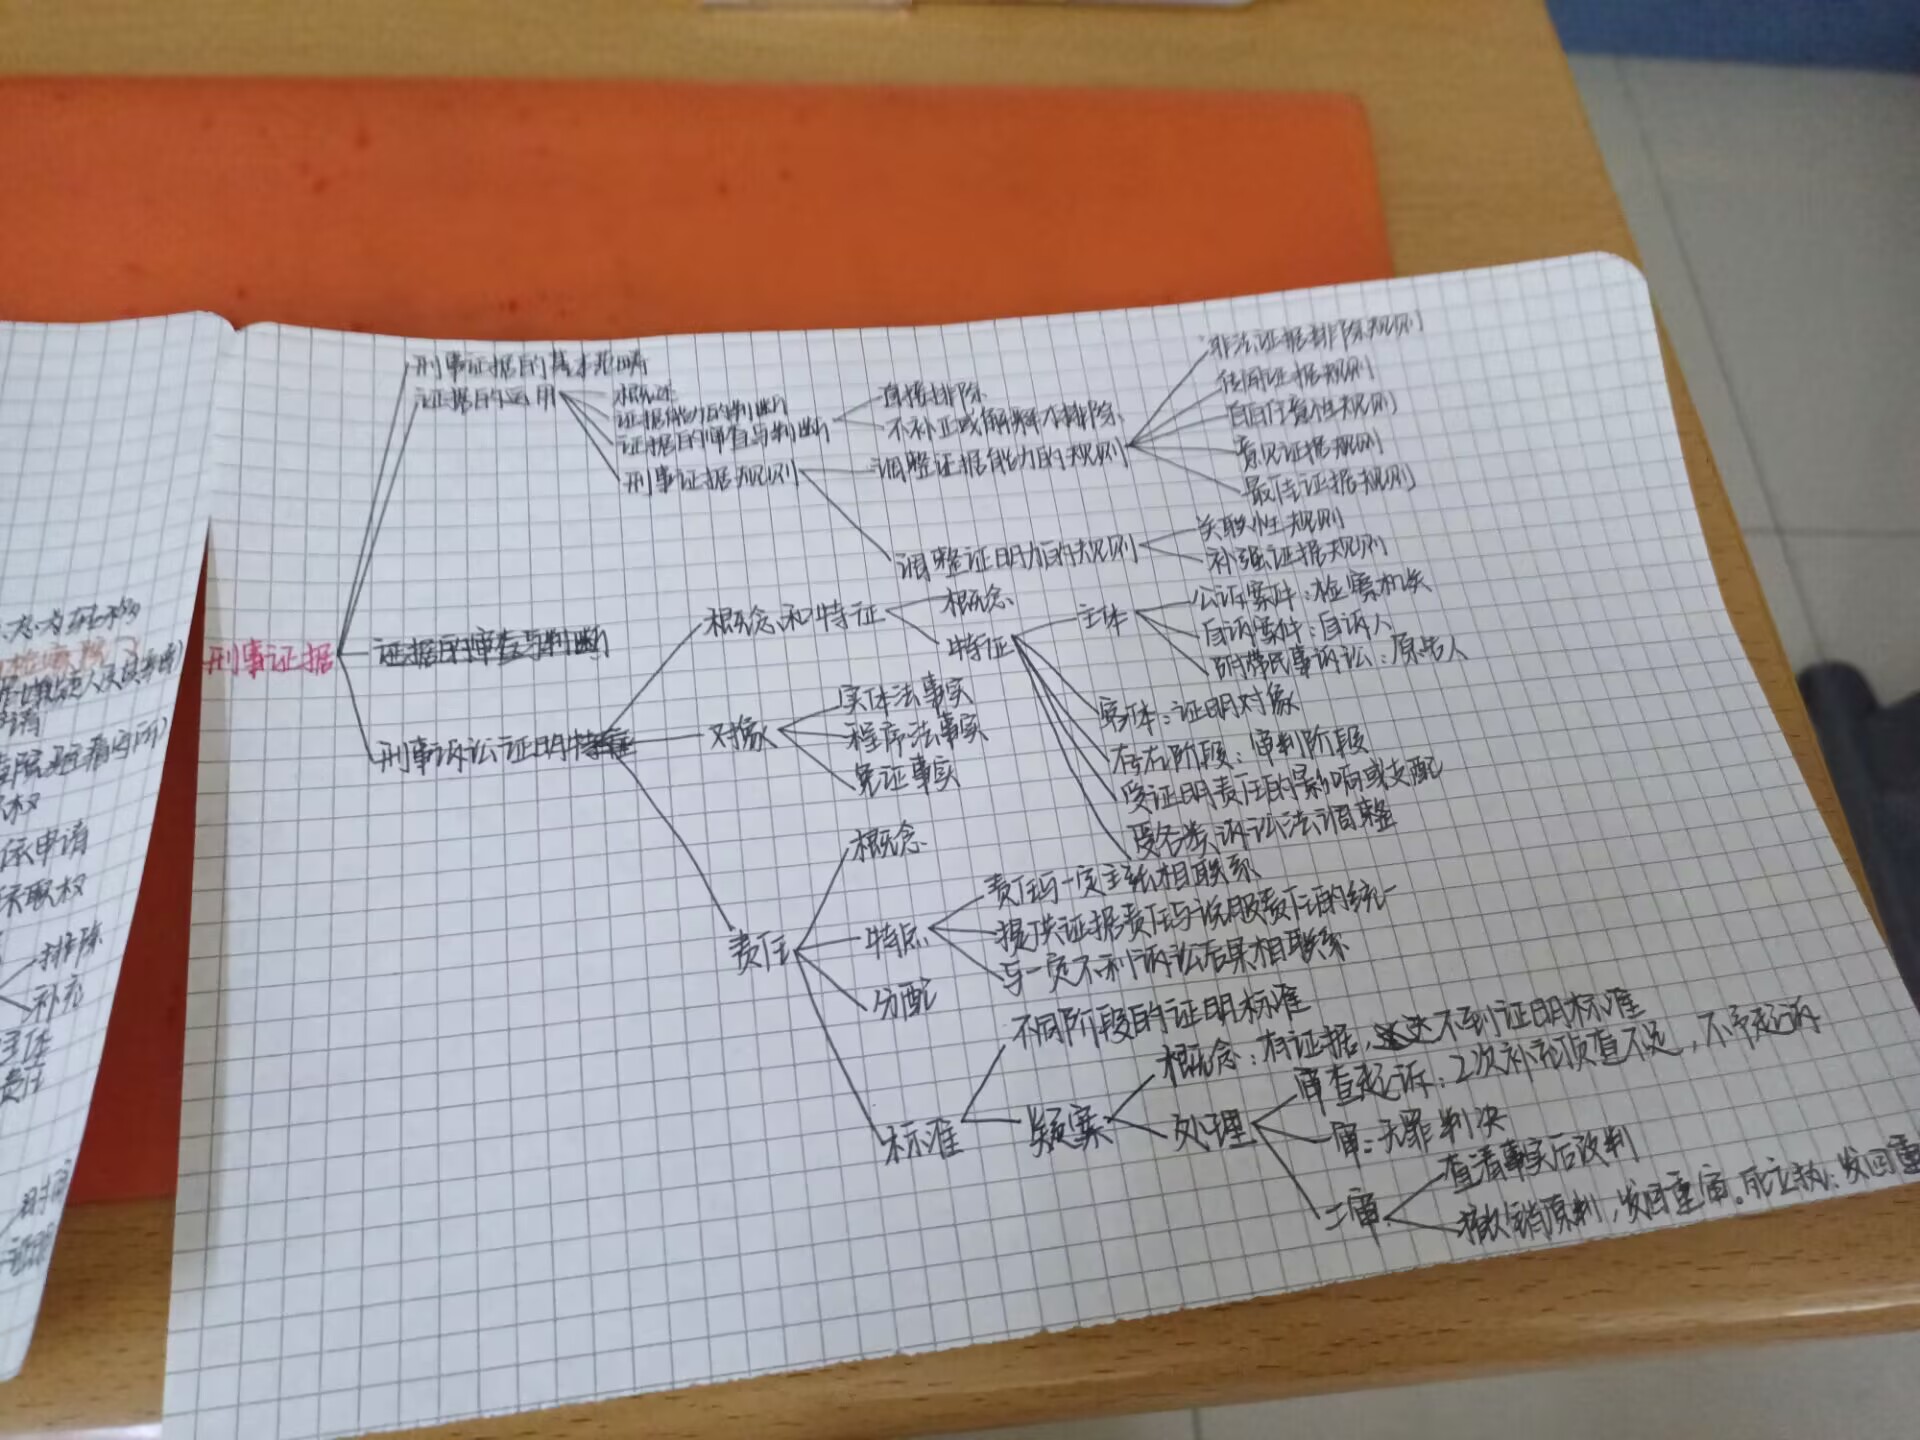 刑事证据
刑事证据的基本范畴
证据的运用
概述
证据能力的判断
证据的审查与判断
直接排除
不补正或解释才排除
刑事证据规则
调整证据能力的规则
非法证据排除规则
传闻证据规则
自白任意性规则
意见证据规则
最佳证据规则
调整证明力的规则
关联性规则
补强证据规则
证据的审查与判断
刑事诉讼证明
概念和特征
概念
特征
主体
公诉案件：检察机关
自诉案件：自诉人
附带民事诉讼：原告人
客体：证明对象
存在阶段：审判阶段
受证明责任的影响或支配
受各类诉讼法调整
对象
实体法事实
程序法事实
免证事实
责任
概念
特点
责任与一定主张相联系
提供证据责任与说服责任的统一
与一定不利诉讼后果相联系
分配
标准
不同阶段的证明标准
疑案
概念：有证据，达不到证明标准
处理
审查起诉：2次补充侦查不足，不予起诉
一审：无罪判决
二审
查清事实后改判
撤销原判，发回重审。死立执：发回重
申请
保申请
职权
排除
补充
主体
责任